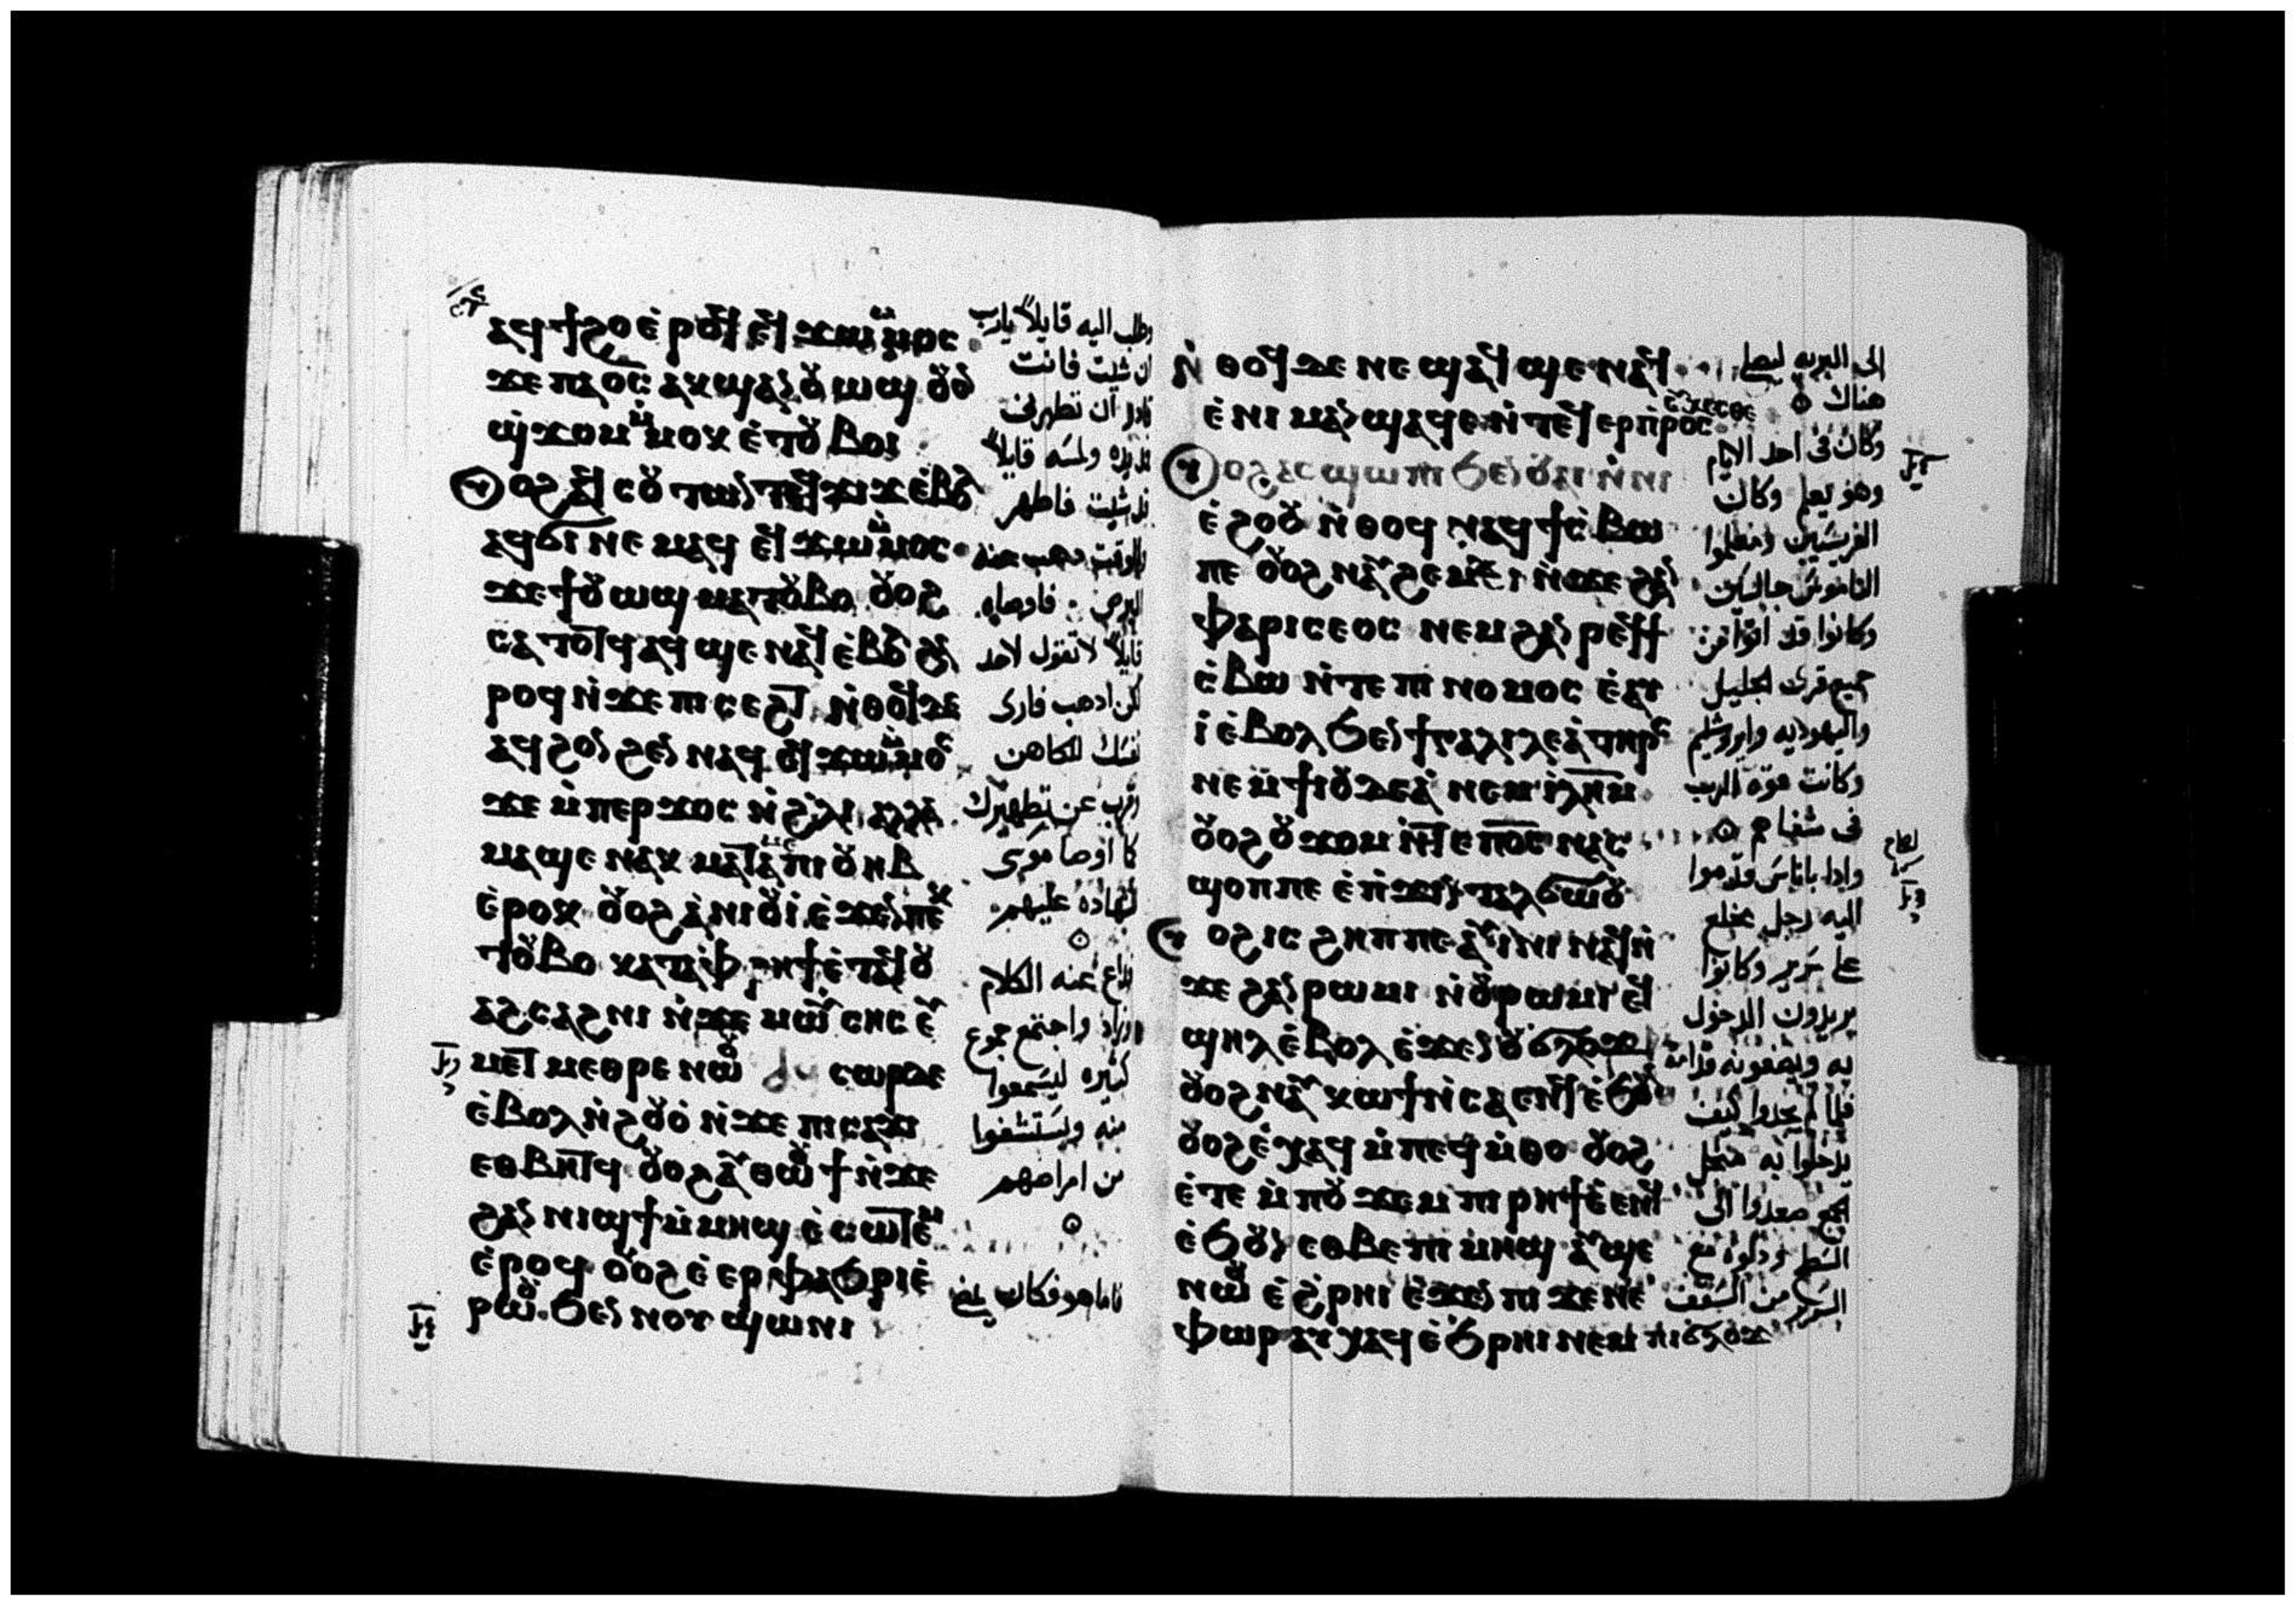 ⲁϥϯϩⲟ ⲉ̀ⲣⲟϥ ⲉϥϫⲱ ⲙ̀ⲙⲟⲥ
ϫⲉ ⲡⲁϭ̅ⲥ̅ ⲁⲕϣⲁⲛⲟⲩⲱϣ ⲟⲩⲟⲛ
ϣϫⲟⲙ ⲙ̀ⲙⲟⲕ ⲉ̀ⲧⲟⲩⲃⲟⲓ
ⲟϩ ⲁϥⲥⲟⲩⲧⲱⲛ ⲧⲉϥϫⲓϫ ⲉ̀ⲃⲟⲗ
ⲁϥϭⲓ ⲛⲉⲙⲁϥ ⲉϥϫⲱ ⲙ̀ⲙⲟⲥ
ϫⲉ ϯⲟⲩⲱϣ ⲙⲁⲧⲟⲩⲃⲟ ⲟⲩⲟϩ
ⲥⲁⲧⲟⲧϥ ⲁϥϣⲉ ⲛⲁϥ ⲉ̀ⲃⲟⲗ ϩⲁ
ⲣⲟϥ ⲛ̀ϫⲉ ⲡⲓⲥⲉϩⲧ ⲛ̀ⲑⲟϥ ⲇⲉ
ⲁϥϩⲟⲛϩⲉⲛ ⲛⲁϥ ⲉϥϫⲱ ⲙ̀ⲙⲟⲥ
ϫⲉ ⲙ̀ⲡⲉⲣϫⲟⲥ ⲛ̀ϩ̀ⲗⲓ ⲁⲗⲗⲁ
ⲙⲁϣⲉ ⲛⲁⲕ ⲙⲁⲧⲁⲙⲉ ⲡⲓⲟⲩⲏⲃ
ⲉ̀ⲣⲟⲕ ⲟⲩⲟϩ ⲁ̀ⲛⲓⲟⲩⲓ̀ ⲉ̀ϫⲉⲛ ⲡⲉⲕ
ⲧⲟⲩⲃⲟ ⲕⲁⲧⲁ ⲫ̀ⲣⲏϯ ⲉ̀ⲧⲁϥⲟⲩ
ⲁϩⲥⲁϩⲛⲓ ⲛ̀ϫⲉ ⲙⲱⲩⲥⲏⲥ ⲉⲩ
ⲙⲉⲧⲙⲉⲑⲣⲉ ⲛⲱⲟⲩ ⲥⲱⲣ ⲇⲉ
ⲉ̀ⲃⲟⲗ ⲛ̀ϩⲟⲩⲟ̀ ⲛ̀ϫⲉ ⲡⲓⲥⲁϫⲓ
ⲉⲑⲃⲏⲧϥ ⲟⲩⲟϩ ⲁⲩⲑⲱⲟⲩϯ ⲛ̀ϫⲉ
ϩⲁⲛⲛⲓϣϯ ⲙ̀ⲙⲏϣ ⲉ̀ⲥⲱⲧⲉⲙ
ⲉ̀ⲣⲟϥ ⲟⲩⲟϩ ⲉ̀ⲉⲣⲫⲁϧⲣⲓ ⲉ̀
ⲣⲱⲟⲩ ϧⲉⲛ ⲛⲟⲩϣⲱⲛⲓ
وطلب اليه قايلاً يارب
ان شيت فانت
قادر ان تطهرنى
فمد يده ولمسه قايلاً
قد شيت فاطهر
وللوقت ذهب عنه
البرص فاوصاه
قايلاً لا تقول لاحد
لكن اذهب فارى
نفسك للكاهن
وقرب عن تطهيرك
كما اوصا موسى
لشهاده عليهم
فذاع عنه الكلام
وزاد واجتمع جموع
كثيره ليسمعوا
منه ويستشفوا
من امراضهم
فاما هو فكان يمضى
ⲛ̀ⲑⲟϥ ⲇⲉ ⲛⲉ ϣⲁϥϣⲉ ⲛⲁϥ
ⲉ̀ⲛⲓⲙⲁⲛϣⲁϥⲉ ⲛ̀ⲧⲉϥⲉⲣⲡ̀ⲣⲟⲥ
ⲉⲩⲭⲉⲥⲑⲉ
ⲟϩ ⲁⲥϣⲱⲡⲓ ϧⲉⲛ ⲟⲩⲁⲓ ⲛ̀ⲛⲓ
ⲉ̀ϩⲟⲟⲩ ⲛ̀ⲑⲟϥ ⲛⲁϥϯⲥ̀ⲃⲱ
ⲡⲉ ⲟⲩⲟϩ ⲛⲁⲩϩⲉⲙⲥⲓ ⲛ̀ϫⲉ ϩⲁⲛ
ⲫⲁⲣⲓⲥⲉⲟⲥ ⲛⲉⲙ ϩⲁⲛⲣⲉϥϯ
ⲥ̀ⲃⲱ ⲛ̀ⲧⲉ ⲡⲓⲛⲟⲙⲟⲥ ⲉ̀ⲁⲩ
ⲓ̀ ⲉ̀ⲃⲟⲗ ϧⲉⲛ ϯⲅⲁⲗⲓⲗⲉⲁ̀ ⲧⲏⲣⲥ
ⲛⲉⲙ ϯⲓⲟⲩⲇⲉⲁ̀ ⲛⲉⲙ ⲓ̀ⲗ̅ⲏ̅ⲙ̅
ⲟⲩⲟϩ ⲟⲩϫⲟⲙ ⲛ̀ⲧⲉ ⲡ̅ⲟ̅ⲥ̅ ⲛⲁⲥ
ϣⲟⲡ ⲡⲉ ⲉ̀ⲡ̀ϫⲓⲛⲧⲁⲗϭⲱⲟⲩ
ⲟϩ ⲓⲥ ϩⲏⲡⲡⲉ ⲁⲩⲓ̀ⲛⲓ ⲛⲁϥ ⲛ̀
ϫⲉ ϩⲁⲛⲣⲱⲙⲓ ⲛ̀ⲟⲩⲣⲱⲙⲓ ⲉϥ
ϣⲏⲗ ⲉ̀ⲃⲟⲗ ⲉ̀ϫⲉⲛ ⲟⲩϭⲗⲟϫ
ⲟⲩⲟϩ ⲛⲁⲩⲕⲱϯ ⲛ̀ⲥⲁ ⲉⲛϥ ⲉ̀ϧⲟⲩⲛ
ⲟⲩⲟϩ ⲉ̀ⲭⲁϥ ⲙ̀ⲡⲉϥⲙ̀ⲑⲟ ⲟⲩⲟϩ
ⲉ̀ⲧⲉ ⲙ̀ⲡⲟⲩϫⲉⲙ ⲡⲓⲣⲏϯ ⲉ̀ⲉⲛϥ
ⲉ̀ϧⲟⲩⲛ ⲉⲑⲃⲉ ⲡⲓⲙⲏϣ ⲁⲩϣⲉ
ⲛⲱⲟⲩ ⲉ̀ϩ̀ⲣⲏⲓ ⲉ̀ϫⲉⲛ ⲡⲓϫⲉⲛⲉ
ⲫⲱⲣ ⲁⲩⲭⲁϥ ⲉ̀ϧⲣⲏⲓ ⲛⲉⲙ ⲡⲓϭⲗⲟϫ
الى البريه ليصلى
هناك
وكان فى احد الايام
وهو يعلم وكان
الفريسيين ومعلموا
الناموس جالسين
وكانوا قد اتوا من
جميع قرى الجليل
واليهوديه وايروشليم
وكانت قوه الرب
فى شفاهم
واذا باناس قدموا
اليه رجل مخلع
على سرير وكانوا
يريدون الدخول
به ويضعونه قدامه
فلما لم يجدوا كيف
يدخلوا به
الجمع صعدوا الى
السطح ودلوه مع
السرير من السقف